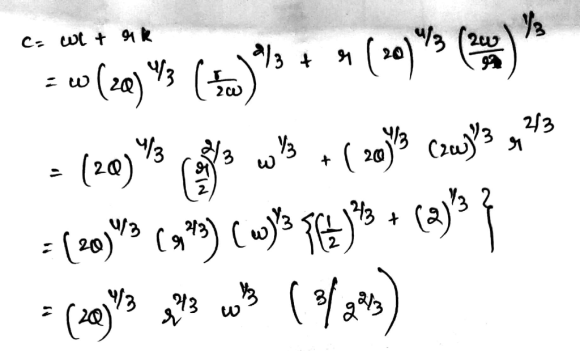 c = wl + rk
= w (2Q)^{4/3} (r/2w)^{2/3} + r (2Q)^{4/3} (2w/r)^{1/3}
= (2Q)^{4/3} (r/2)^{2/3} w^{1/3} + (2Q)^{4/3} (2w)^{1/3} r^{2/3}
= (2Q)^{4/3} (r^{2/3}) (w)^{1/3} {(1/2)^{2/3} + (2)^{1/3}}
= (2Q)^{4/3} r^{2/3} w^{1/3} (3/2^{2/3})